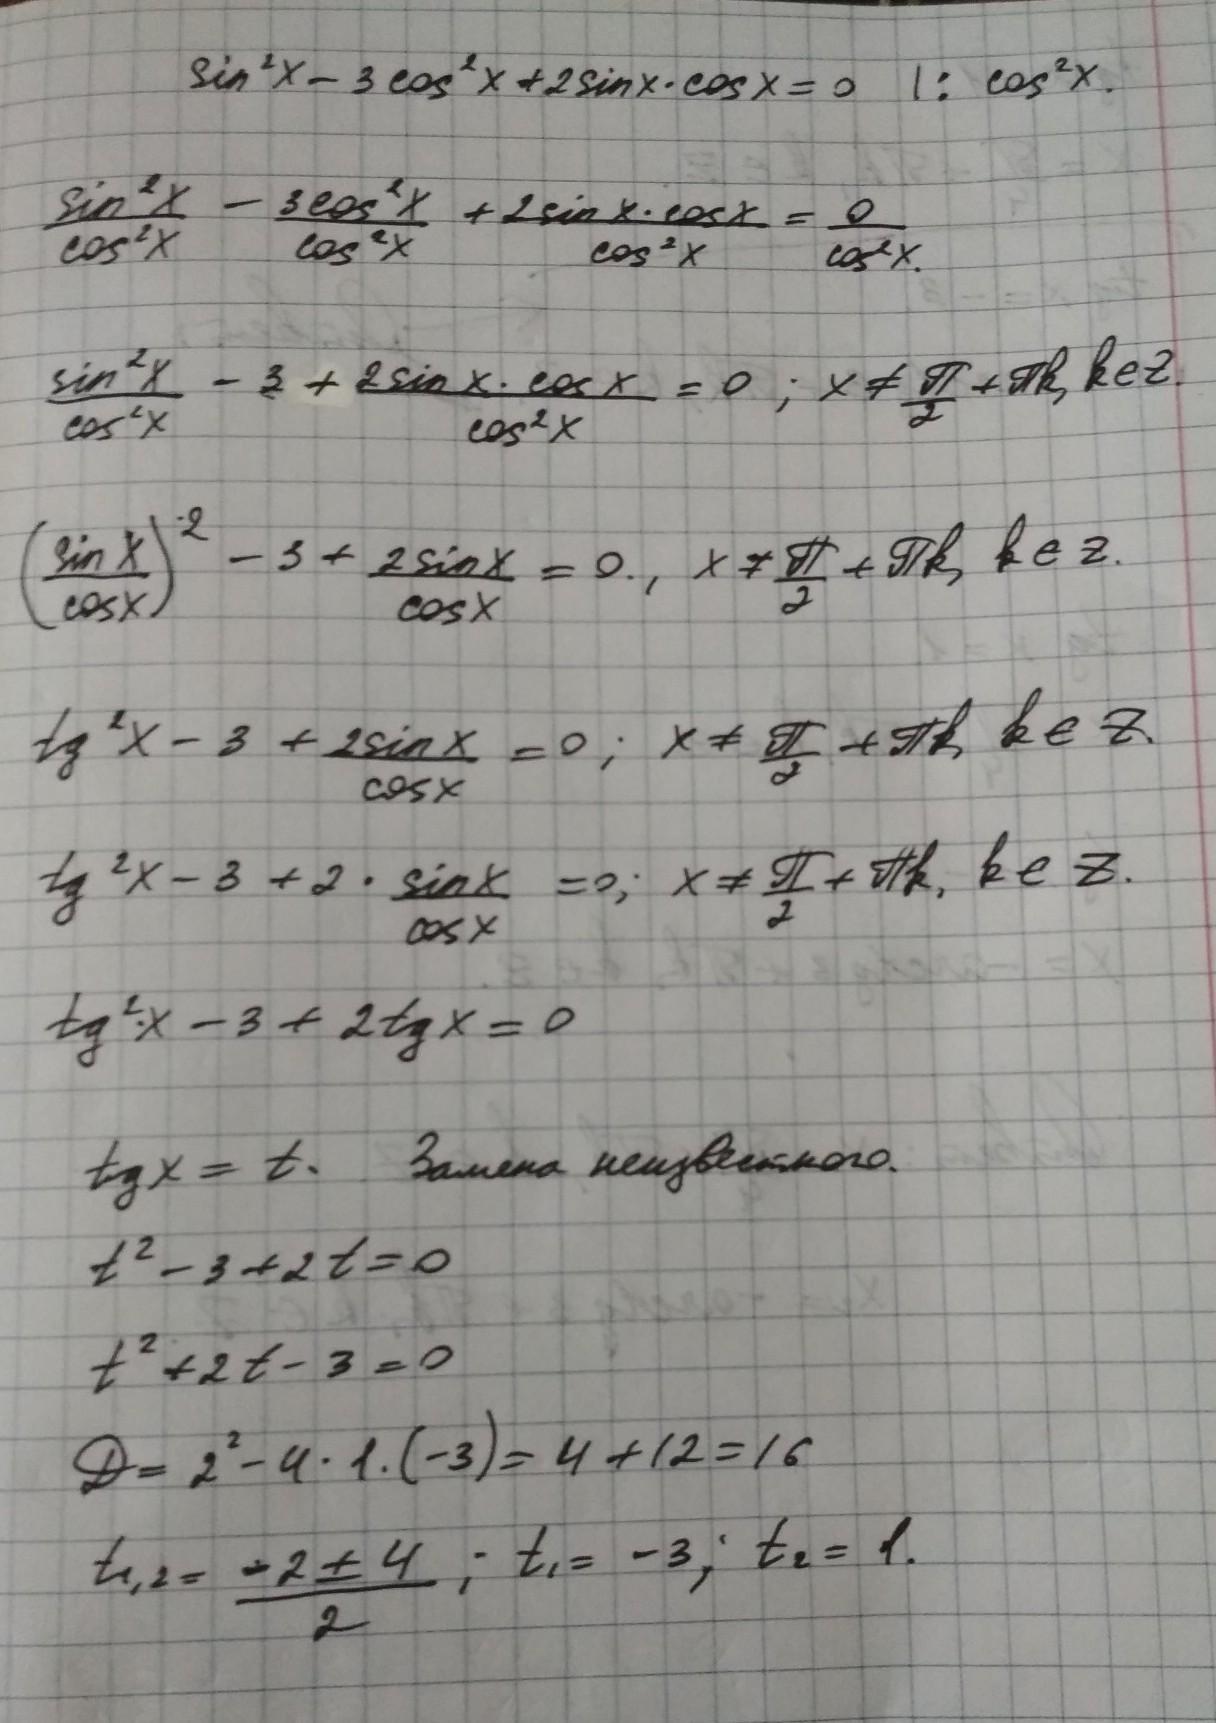 sin²x − 3cos²x + 2sinx · cosx = 0 | : cos²x.
sin²x/cos²x − 3cos²x/cos²x + 2sinx · cosx/cos²x = 0/cos²x.
sin²x/cos²x − 3 + 2sinx · cosx/cos²x = 0 ; x ≠ π/2 + πk, k ∈ Z.
(sinx/cosx)² − 3 + 2sinx/cosx = 0., x ≠ π/2 + πk, k ∈ Z.
tg²x − 3 + 2sinx/cosx = 0 ; x ≠ π/2 + πk, k ∈ Z.
tg²x − 3 + 2 · sinx/cosx = 0; x ≠ π/2 + πk, k ∈ Z.
tg²x − 3 + 2tgx = 0
tgx = t. Замена неизвестного.
t² − 3 + 2t = 0
t² + 2t − 3 = 0
D = 2² − 4 · 1 · (−3) = 4 + 12 = 16
t₁,₂ = −2 ± 4/2 ; t₁ = −3; t₂ = 1.